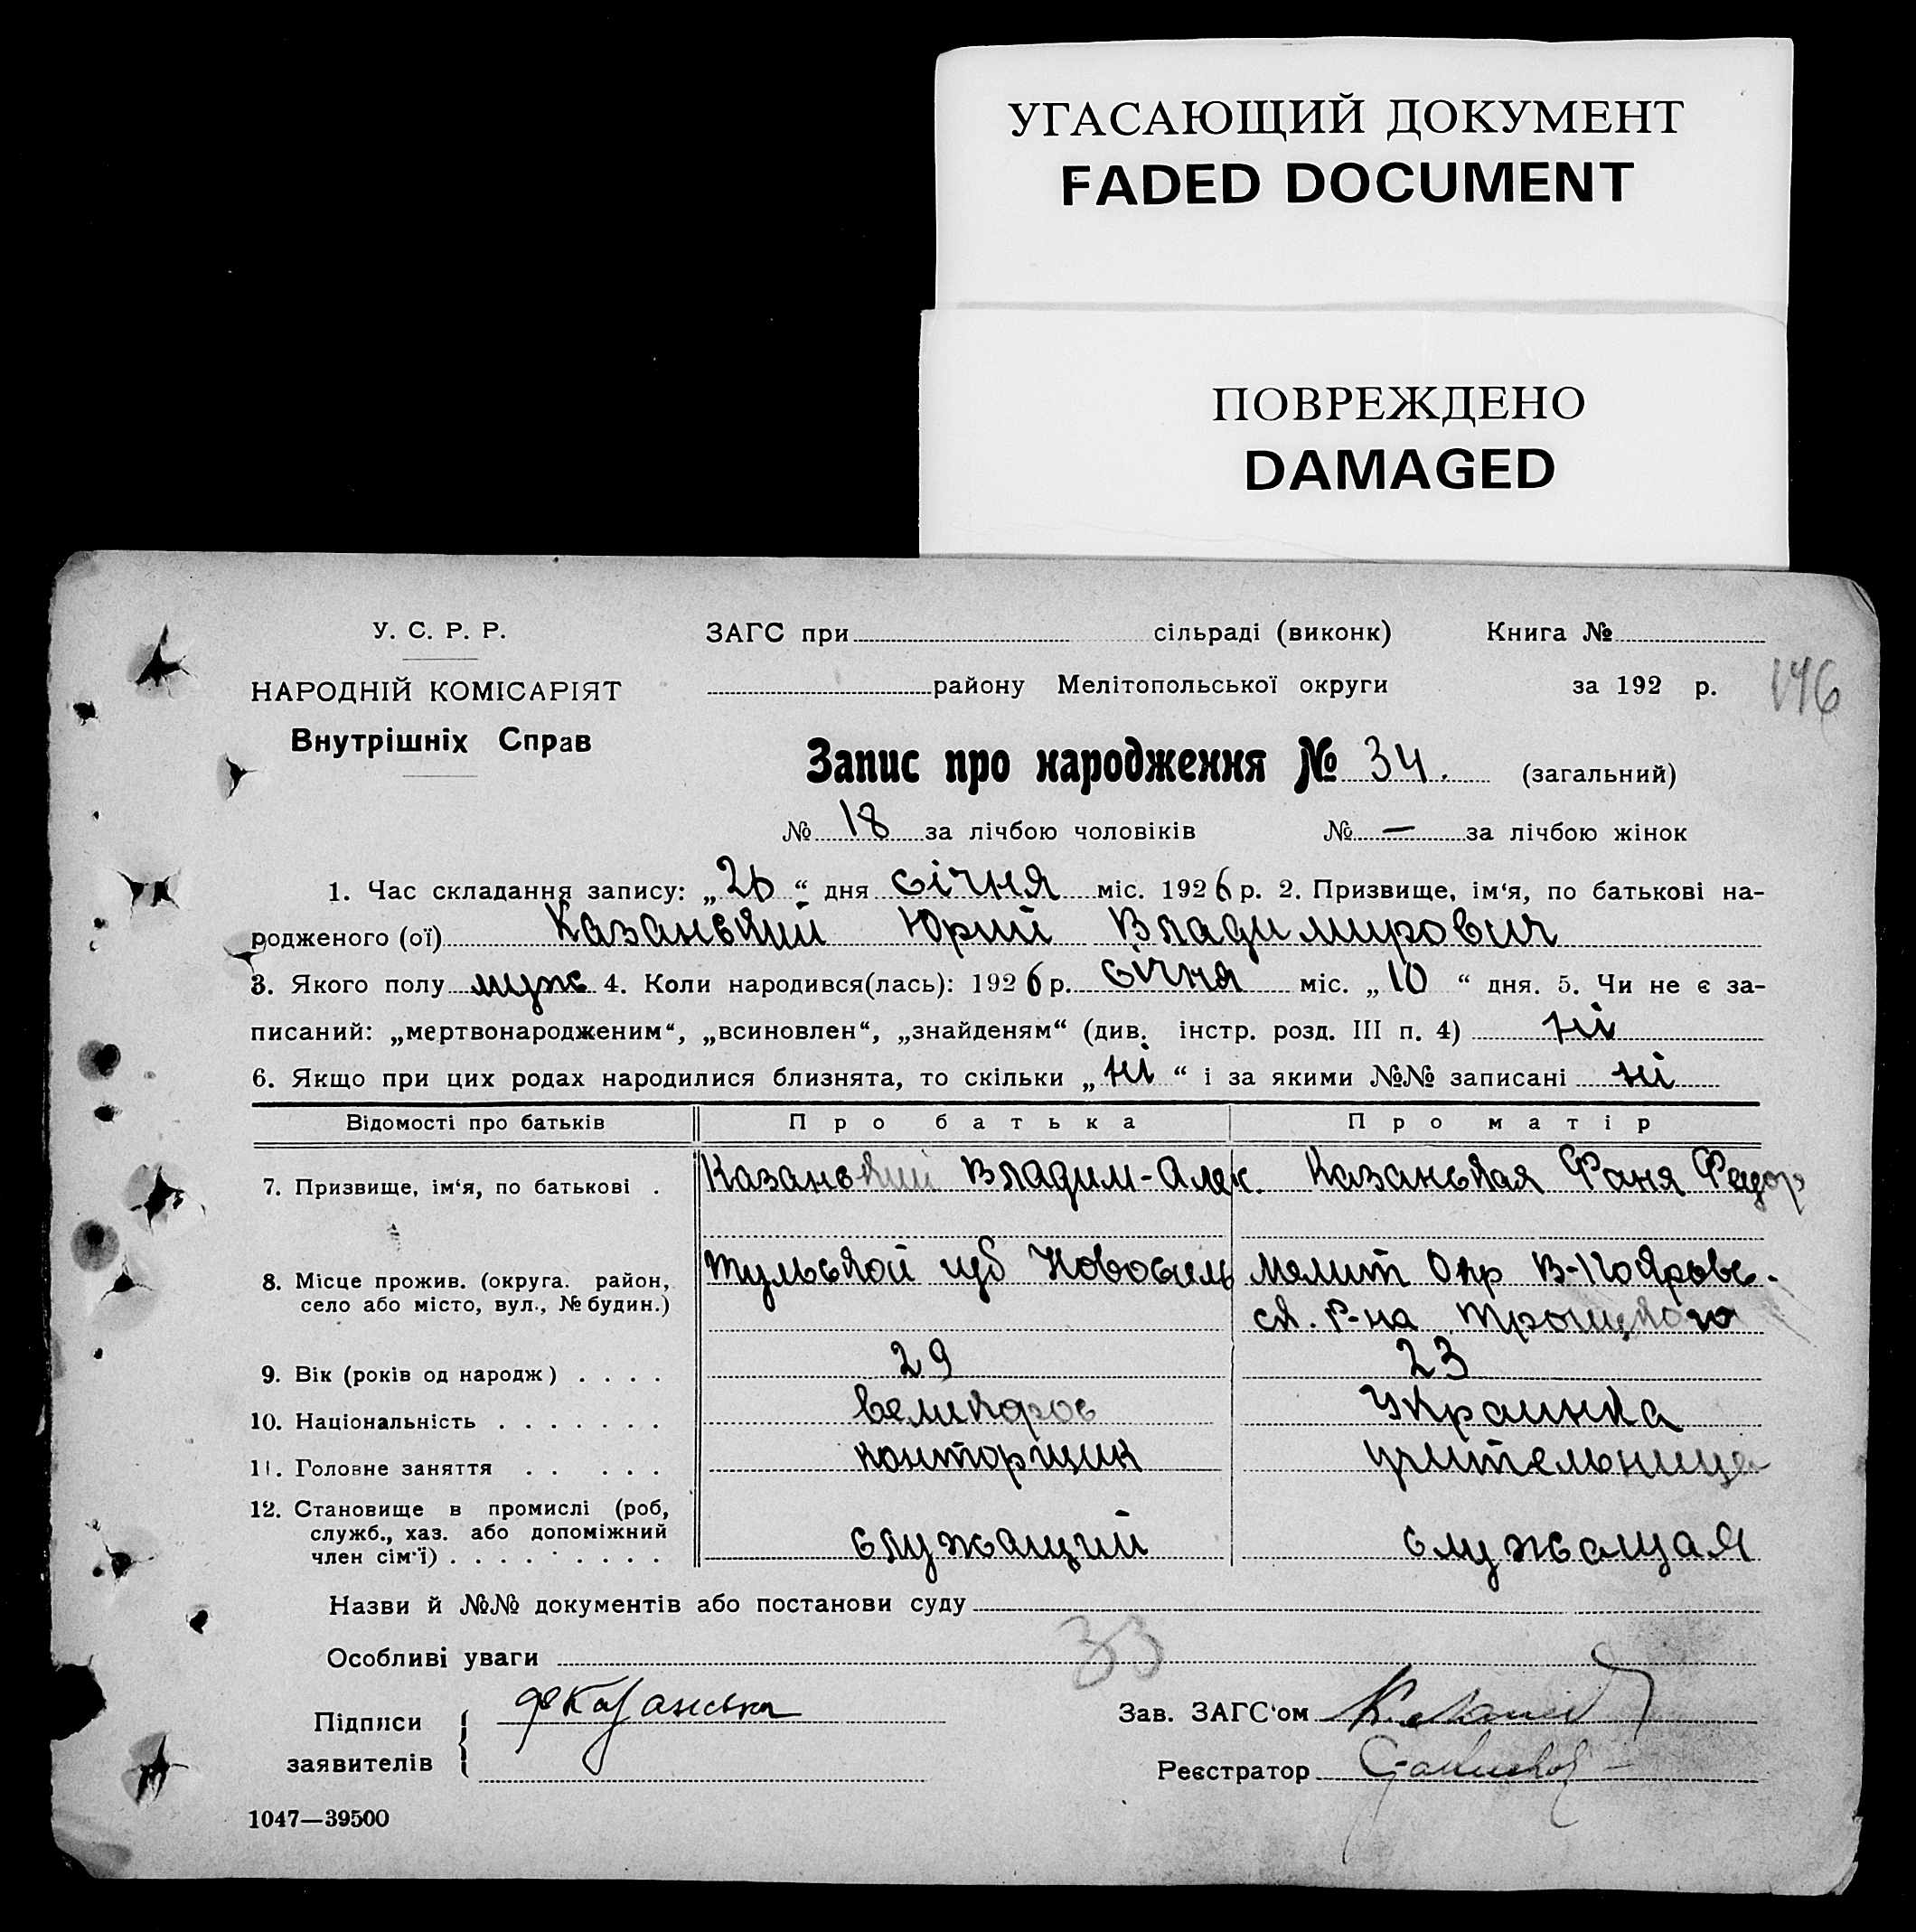 УГАСАЮЩИЙ ДОКУМЕНТ
FADED DOCUMENT
ПОВРЕЖДЕНО
DAMAGED
У. С. Р. Р.
НАРОДНІЙ КОМІСАРІЯТ
Внутрішніх Справ
ЗАГС при сільраді (виконк) Книга №
району Мелітопольської округи за 192 р.
146
Запис про народження № 34. (загальний)
№ 18 за лічбою чоловіків № — за лічбою жінок
1. Час складання запису: „26“ дня січня міс. 1926 р. 2. Призвище, ім‘я, по батькові на-
родженого (ої) Казанский Юрий Владимирович
3. Якого полу муж 4. Коли народився(лась): 1926 р. січня міс. „10“ дня. 5. Чи не є за-
писаний: „мертвонародженим“, „всиновлен“, „знайденям“ (див. інстр. розд. III п. 4) ні
6. Якщо при цих родах народилися близнята, то скільки „ні“ і за якими №№ записані ні
Відомості про батьків Про батька Про матір
7. Призвище, ім‘я, по батькові . Казанский Владим-Алек. Казанская Фаня Федор
8. Місце прожив. (округа. район, Тульской губ Новосиль Мелит Окр В-
село або місто, вул., № будин.) ск. р-на Троицкого
9. Вік (років од народж) . . . . 29 23
10. Національність . . . . . . . великорос Украинка
11. Головне заняття . . . . . . конторщик учительница
12. Становище в промислі (роб,
служб., хаз. або допоміжний
член сім‘ї) . . . . . . . . . . служащий служащая
Назви й №№ документів або постанови суду
Особливі уваги
33
Підписи
заявителів
Ф Казанська
Зав. ЗАГС‘ом
Реєстратор
1047—39500